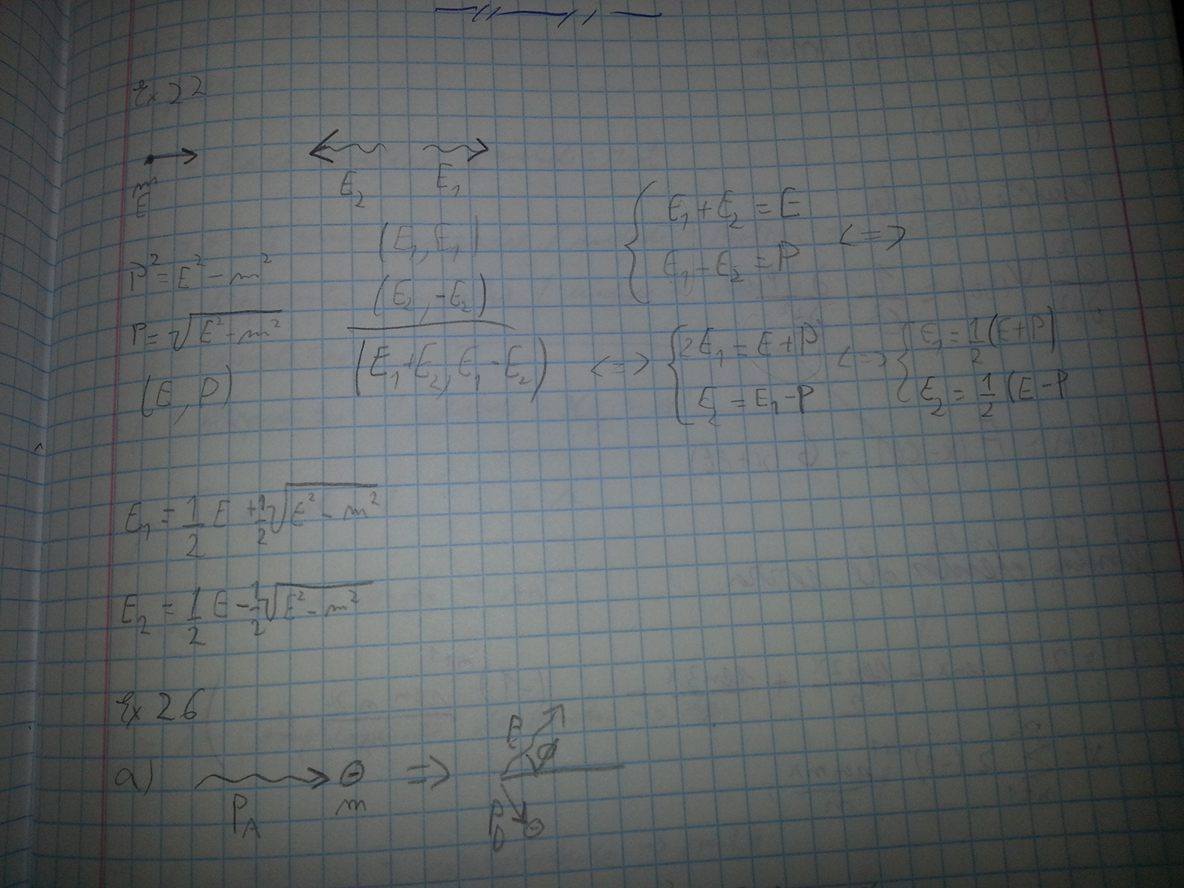 Ex 22
m
E
E₂
E₁
P² = E² - m²
P = √(E² - m²)
(E, P)
(E₁, E₁)
(E₂, -E₂)
(E₁+E₂, E₁-E₂)
{ E₁ + E₂ = E
E₁ - E₂ = P <=>
<=> { 2E₁ = E + P
E₂ = E₁ - P
<=> { E₁ = 1/2 (E+P)
E₂ = 1/2 (E-P
E₁ = 1/2 E + 1/2 √(E² - m²)
E₂ = 1/2 E - 1/2 √(E² - m²)
Ex 26
a) P_A m => E ϕ